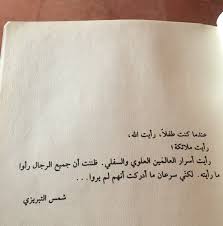 عندما كنت طفلاً، رأيت الله،
رأيت ملائكة؛
رأيت أسرار العالمين العلوي والسفلي. ظننت أن جميع الرجال رأوا
ما رأيته. لكني سرعان ما أدركت أنهم لم يروا...
شمس التبريزي